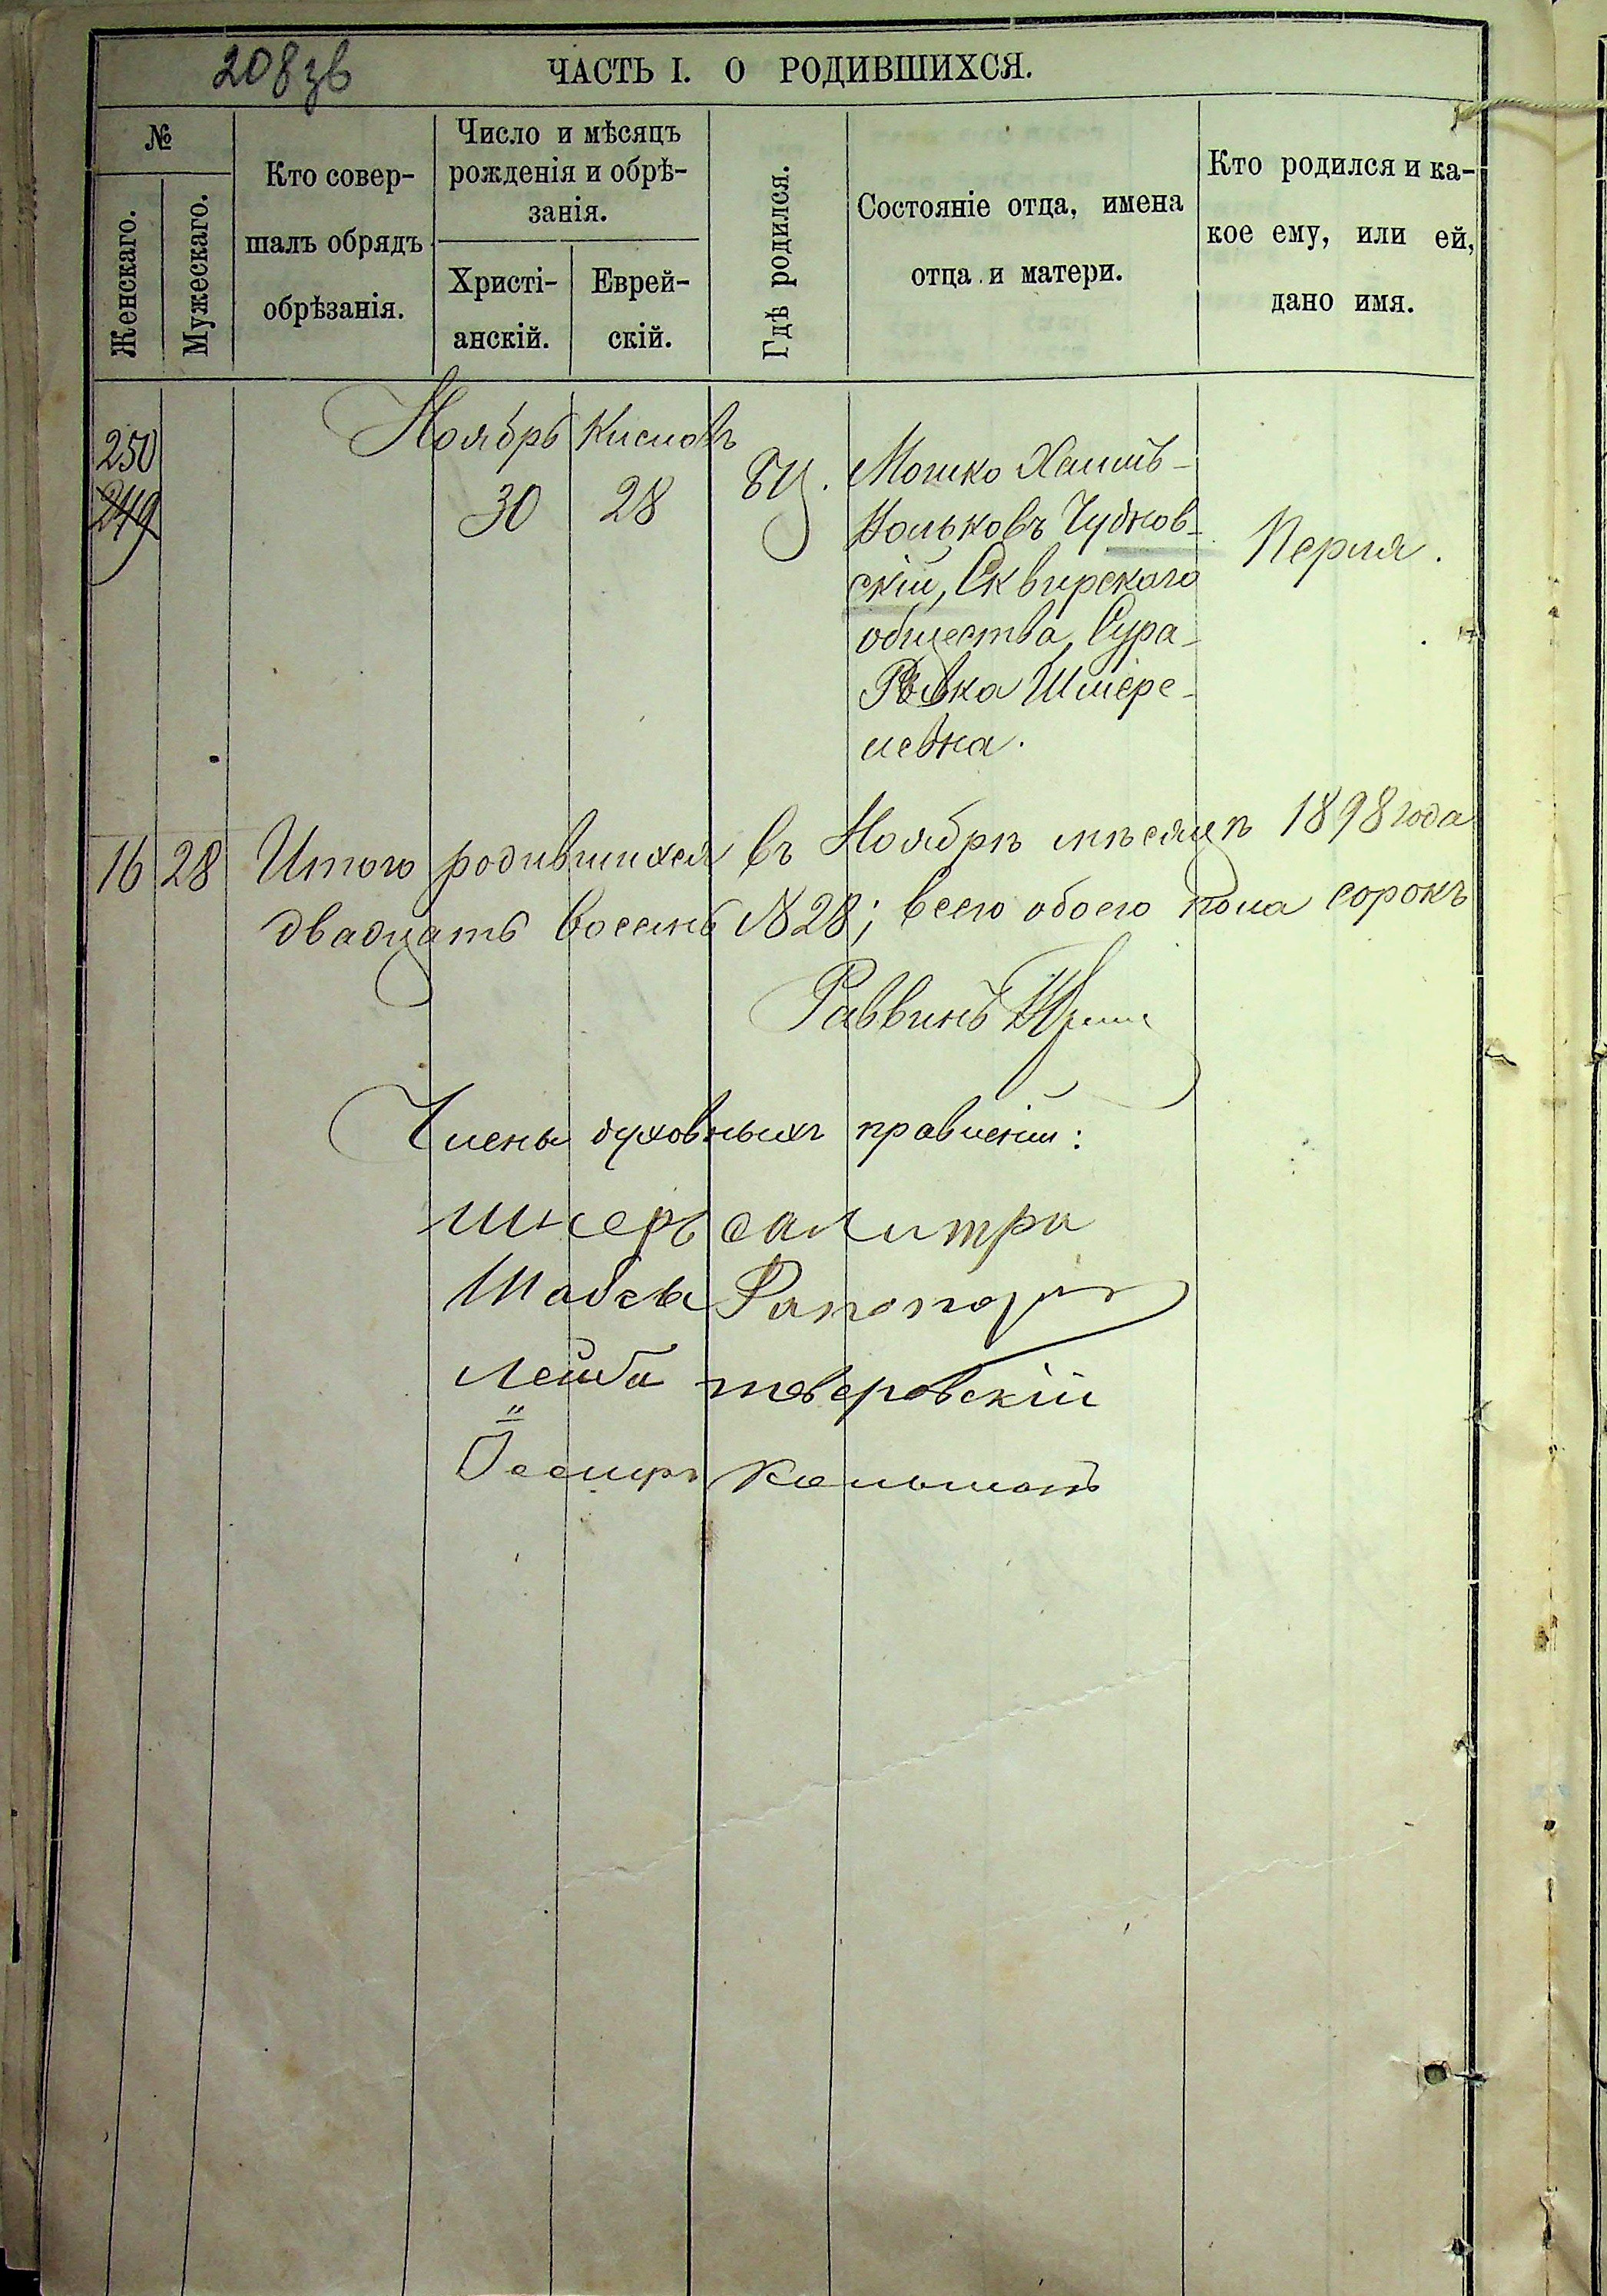 208зв
ЧАСТЬ I. О РОДИВШИХСЯ.
№
Женскаго.
Мужескаго.
Кто совер-
шалъ обрядъ
обрѣзанія.
Число и мѣсяцъ
рожденія и обрѣ-
занія.
Христі-
анскій.
Еврей-
скій.
Гдѣ родился.
Состояніе отца, имена
отца и матери.
Кто родился и ка-
кое ему, или ей,
дано имя.
Ноябрь Кислевъ
250
249
30 28
БЦ.
Мошко Хаимъ-
Нольковъ Чуднов-
скій, Сквирскаго
общества, Сура-
Ривка Шмере-
левна.
Перля.
16 28 Итого родившихся въ Ноябрѣ мѣсяцѣ 1898 года
двадцать восемь №28; всего обоего пола сорокъ
Раввинъ
Члены духовныхъ правленій:
шнеръ салитра
Шабса Рапопортъ
лейба тверовскій
Кельманъ